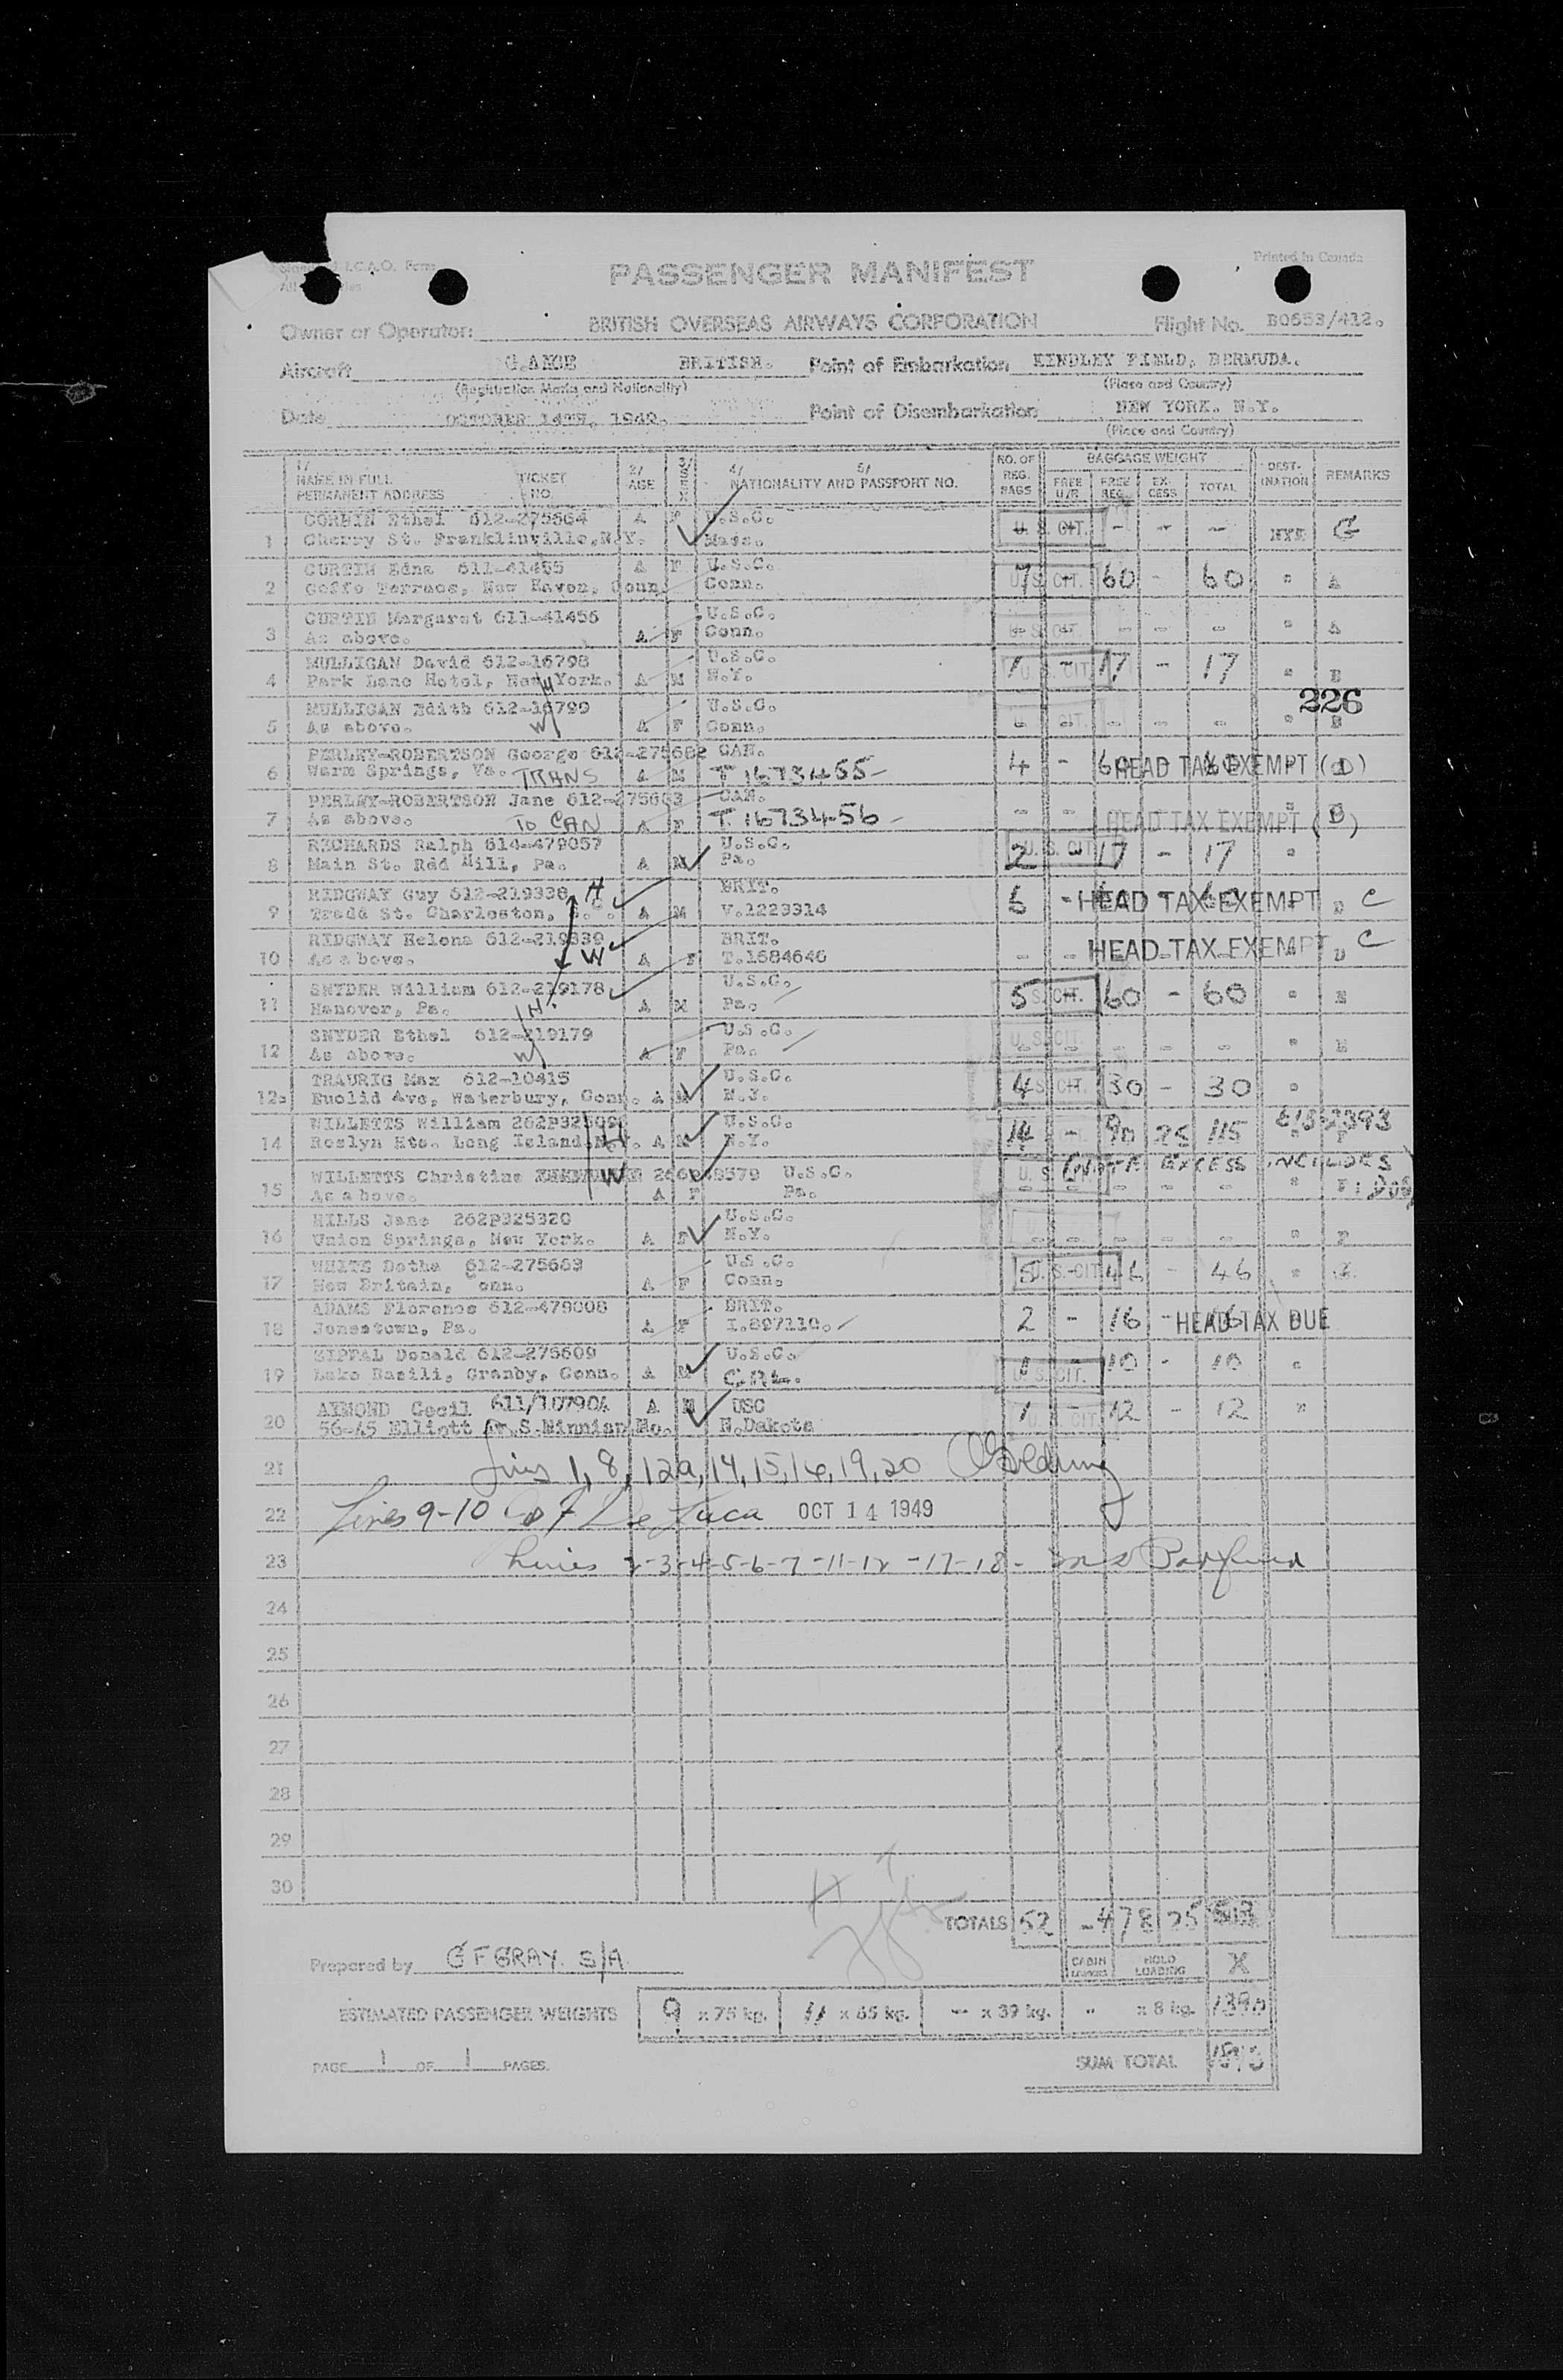 I.C.A.O. Form
Printed in Canada
PASSENGER MANIFEST
Owner or Operator: BRITISH OVERSEAS AIRWAYS CORPORATION Flight No. B0653/412.
Aircraft BRITISH. Point of Embarkation KINDLEY FIELD, BERMUDA.
(Registration Marks and Nationality) (Place and Country)
Date OCTOBER 14TH, 1949. Point of Disembarkation NEW YORK. N.Y.
(Place and Country)
1/ NAME IN FULL PERMANENT ADDRESS TICKET NO. 2/ AGE 3/ SEX 4/ 5/ NATIONALITY AND PASSPORT NO. NO. OF REG. BAGS BAGGAGE WEIGHT FREE U/R FREE REG. EXCESS TOTAL DESTINATION REMARKS
CORBIN Ethel 612-275664 A F U.S.C. U.S. CIT. - - - NYK G
1 Cherry St. Franklinville, N.Y. Mass.
CURTIN Edna 611-41455 A F U.S.C. 7 U.S. CIT. 60 - 60 " A
2 Goffe Terrace, New Haven, Conn. Conn.
CURTIN Margaret 611-41456 U.S.C.
3 As above. A F Conn. - U.S. CIT. - - - " A
MULLIGAN David 612-16798 U.S.C. 1 - 17 - 17
4 Park Lane Hotel, New York. A M N.Y. U.S. CIT. " B
MULLIGAN Edith 612-16799 U.S.C. 226
5 As above. W A F Conn. - CIT. - - - " B
PERLEY-ROBERTSON George 612-275682 CAN.
6 Warm Springs, Va. TRANS A M T 1673455- 4 - 60 HEAD TAX EXEMPT (D)
PERLEY-ROBERTSON Jane 612-275683 CAN.
7 As above. TO CAN A F T. 1673456- - - HEAD TAX EXEMPT (D)
RICHARDS Ralph 614-479057 U.S.C. U.S. CIT.
8 Main St. Red Hill, Pa. A M Pa. 2 - 17 - 17 "
RIDGWAY Guy 612-219338 H BRIT.
9 Tradd St. Charleston, S.C. A M V.1223314 HEAD TAX EXEMPT D C
RIDGWAY Helena 612-219339 BRIT.
10 As above. W A F T.1684646 - - HEAD TAX EXEMPT D C
SNYDER William 612-219178 U.S.C.
11 Hanover, Pa. H A M Pa. 5 U.S. CIT. 60 - 60 " E
SNYDER Ethel 612-219179 U.S.C. U.S. CIT.
12 As above. W A F Pa. - - - - - " E
TRAURIG Max 612-10415 U.S.C.
12a Euclid Ave, Waterbury, Conn. A M N.J. 4 U.S. CIT. 30 - 30 "
WILLETTS William 262P32509 U.S.C.
14 Roslyn Hts. Long Island, N.Y. H A M N.Y. 14 - 90 25 115 " F
WILLETTS Christine U.S.C. U.S. (NOTE EXCESS INCLUDES
15 As above. W A F Pa. - - - - - " F 1 DOG)
HILLS Jane 262P325320 U.S.C.
16 Union Springs, New York. A F N.Y. - - - - - " F
WHITE Dotha 612-275663 U.S.C.
17 New Britain, Conn. A F Conn. 5 U.S. CIT. 46 - 46 "
ADAMS Florence 612-479008 BRIT.
18 Jonestown, Pa. A F I.897110. 2 - 16 - HEAD TAX DUE
ZIPPAL Donald 612-275609 U.S.C.
19 Lake Basili, Granby, Conn. A M CAL. 1 U.S. CIT. 10 - 10 "
AYMOND Cecil 611/10790A A M USC
20 56-45 Elliott Av. S. Minnian, Mo. N.Dakota 1 U.S. CIT. 12 - 12 "
21 Lines 1, 8, 12a, 14, 15, 16, 19, 20
22 Lines 9-10 De Luca OCT 14 1949
23 Lines 2-3-4-5-6-7-11-12-17-18-
24
25
26
27
28
29
30
TOTALS 52 - 478 25
Prepared by G F GRAY. S/A CABIN LOADING HOLD LOADING X
ESTIMATED PASSENGER WEIGHTS 9 x 75 kg. 11 x 65 kg. - x 39 kg. " x 8 kg. 1390
PAGE 1 OF 1 PAGES. SUM TOTAL